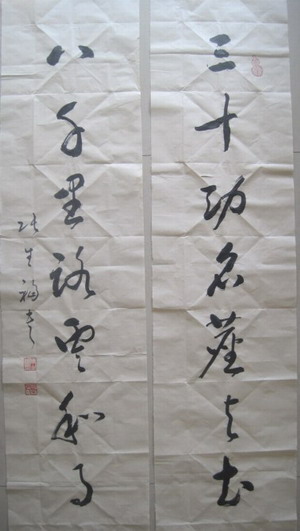 三十功名塵与土
八千里路雲和月
张生福书